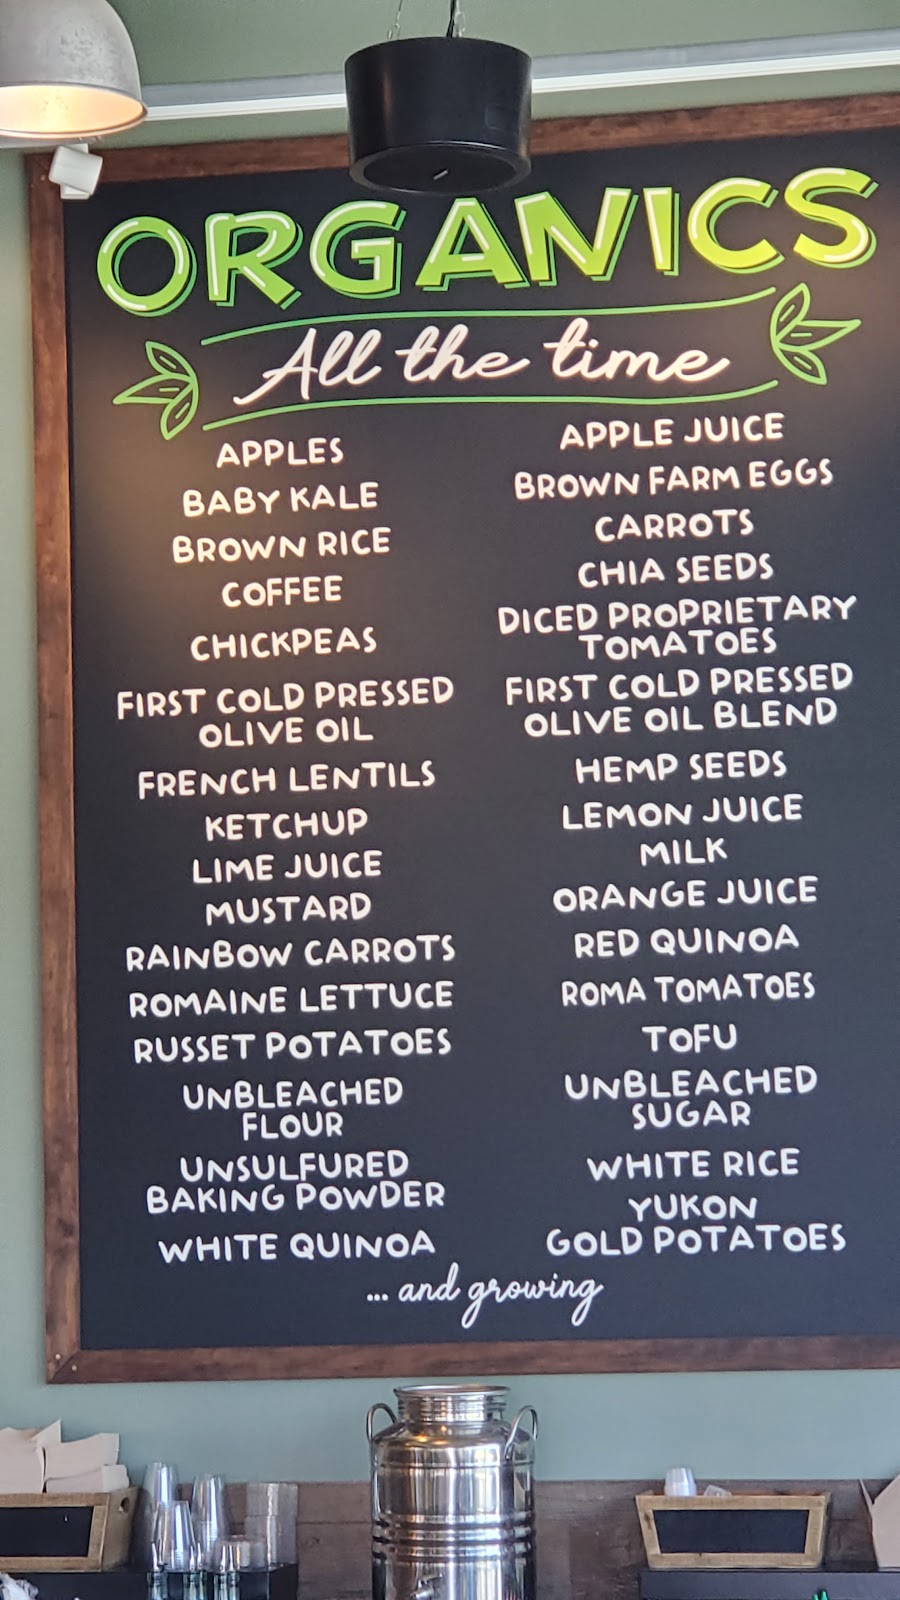 ORGANICS
All the time
APPLES
BABY KALE
BROWN RICE
COFFEE
CHICKPEAS
FIRST COLD PRESSED
OLIVE OIL
FRENCH LENTILS
KETCHUP
LIME JUICE
MUSTARD
RAINBOW CARROTS
ROMAINE LETTUCE
RUSSET POTATOES
UNBLEACHED
FLOUR
UNSULFURED
BAKING POWDER
WHITE QUINOA
APPLE JUICE
BROWN FARM EGGS
CARROTS
CHIA SEEDS
DICED PROPRIETARY
TOMATOES
FIRST COLD PRESSED
OLIVE OIL BLEND
HEMP SEEDS
LEMON JUICE
MILK
ORANGE JUICE
RED QUINOA
ROMA TOMATOES
TOFU
UNBLEACHED
SUGAR
WHITE RICE
YUKON
GOLD POTATOES
... and growing